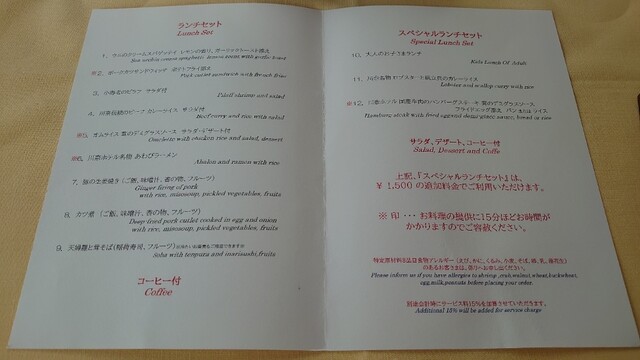 ランチセット
Lunch Set
1. ウニのクリームスパゲッティ レモンの香り、ガーリックトースト添え
Sea urchin cream spaghetti, lemon zoom with garlic toast
※2. ポークカツサンドウィッチ ポテトフライ添え
Pork cutlet sandwich with french fries
3. 小海老のピラフ サラダ付
Pilaff shrimp and salad
4. 川奈伝統のビーフ カレーライス サラダ付
Beef curry and rice with salad
※5. オムライス 茸のデミグラスソース サラダ・デザート付
Omelette with chicken rice and salad, dessert
※6. 川奈ホテル名物 あわびラーメン
Abalon and ramen with rice
7. 豚の生姜焼き (ご飯、味噌汁、香の物、フルーツ)
Ginger firing of pork
with rice, misosoup, pickled vegetables, fruits
8. カツ煮 (ご飯、味噌汁、香の物、フルーツ)
Deep-fried pork cutlet cooked in egg and onion
with rice, misosoup, pickled vegetables, fruits
9. 天婦羅と茸そば(稲荷寿司、フルーツ)
Soba with tenpura and inarisushi, fruits
コーヒー付
Coffee
スペシャルランチセット
Special Lunch Set
10. 大人のお子さまランチ
Kids Lunch Of Adult
11.
Lobster and scallop curry with rice
※12. 川奈ホテル 国産牛肉のハンバーグステーキ 茸のデミグラスソース
フライドエッグ添え パン または ライス
Hamburg steak with fried egg and demi-glace sauce, bread or rice
サラダ、デザート、コーヒー付
Salad, Dessert and Coffe
上記、「スペシャルランチセット」は、
¥1,500 の追加料金でご利用いただけます。
※ 印・・・お料理の提供に15分ほどお時間が
かかりますのでご容赦ください。
特定原材料8品目食物アレルギー (えび、かに、くるみ、小麦、そば、卵、乳、落花生)
のあるお客さまは、係りへお申し出ください。
Please inform us if you have allergies to shrimp ,crab,walnut,wheat,buckwheat,
egg,milk,peanuts before placing your order.
別途会計時にサービス料15%を加算させていただきます。
Additional 15% will be added for service charge